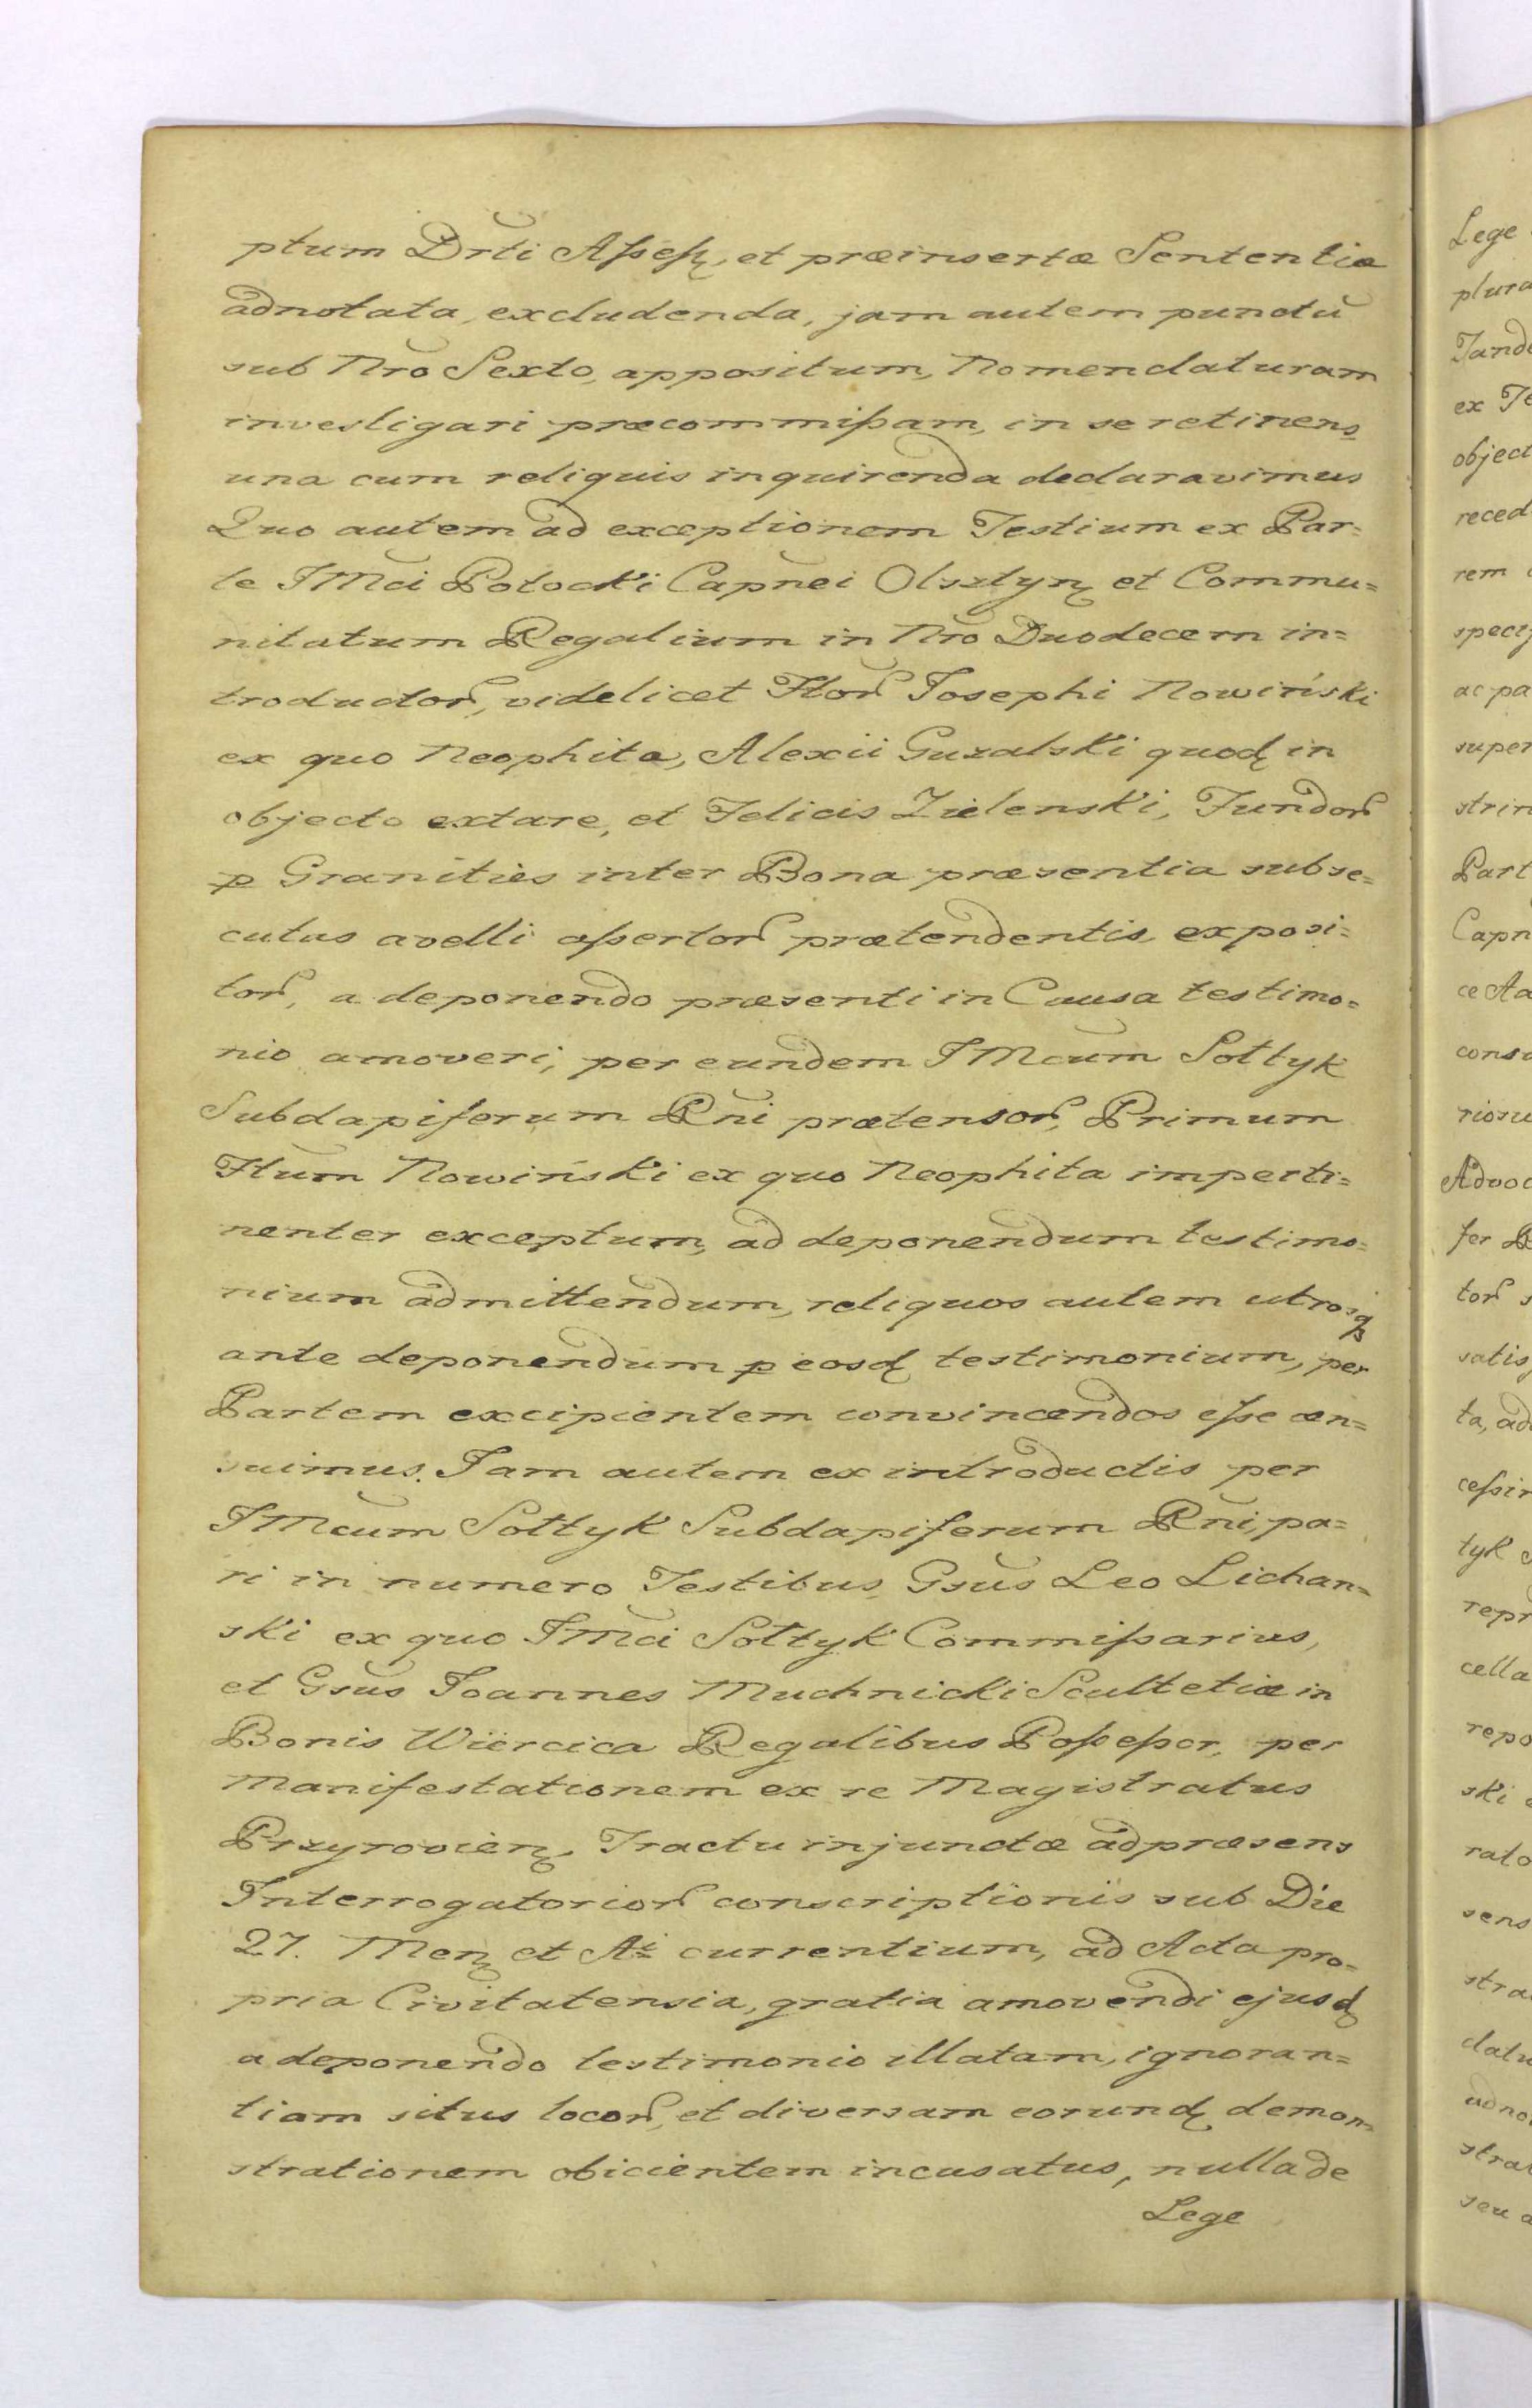 ptum Drti Assess, et præinsertæ Sententiæ
adnotata, excludenda, jam autem punctũ
sub Nro Sexto, appositum, Nomenclaturam
investigari præcommissam, in se retinens
una cum reliquis inquirenda declaravimus
Quo autem ad exceptionem Testium ex Par=
te JMci Potocki Capnei Olsztyn et Commu=
nitatum Regalium in Nro Duodecem in=
troductor, videlicet Hlor Josephi Nowiński
ex quo Neophita, Alexii Guzalski quod in
objecto extare, et Felicis Zielenski, Fundor
p Granities inter Bona præsentia subse=
cutas avelli assertor prætendentis exposi=
tor, a deponendo præsenti in Causa testimo=
nio amoveri, per eundem JMcum Sołtyk
Subdapiferum Rni prætensor, Primum
Hlum Nowiński ex quo Neophita imperti=
nenter exceptum, ad deponendum testimo=
nium admittendum, reliquos autem utrosq
ante deponendum p eosd testimonium, per
Partem excipientem convincendos esse cen=
suimus. Jam autem ex introductis per
JMcum Sołtyk Subdapiferum Rni, pa=
ri in numero Testibus, Gsus Leo Lichan=
ski ex quo JMci Sołtyk Commissarius,
et Gsus Joannes Muchnicki Scultetiæ in
Bonis Wiercica Regalibus Possessor, per
Manifestationem ex re Magistratus
Przyrovien, Tractu injunctæ ad præsens
Interrogatorior conscriptionis sub Die
27. Men et Ai currentium, ad Acta pro=
pria Civitatensia, gratia amovendi ejusd
a deponendo testimonio illatam, ignoran=
tiam situs locor, et diversam eorund demon=
strationem obicientem incusatus, nulla de
Lege
Lege
plura
ex Te
object
reced
rem
specif
ac pa
super
strin
Part
Capn
ce Aa
riosu
Advoc
fer R
tor s
satis
ta, ad
cessir
tyk
repr
cella
repo
ski
rato
sens
stra
datu
adno
strat
seu a